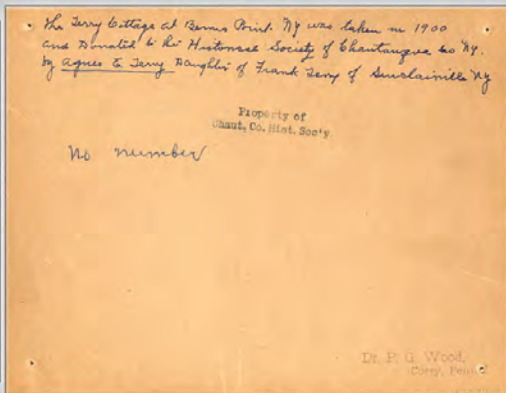 The Terry Cottage at Bemus Point. Ny was taken in 1900
and Donated to the Historical Society of Chautauqua Co Ny.
by Agnes E Terry Daughter of Frank Terry of Sinclairville Ny
Property of
Chaut. Co. Hist. Soc'y.
No number
Dr. P. G. Wood,
Corry, Penn'a.